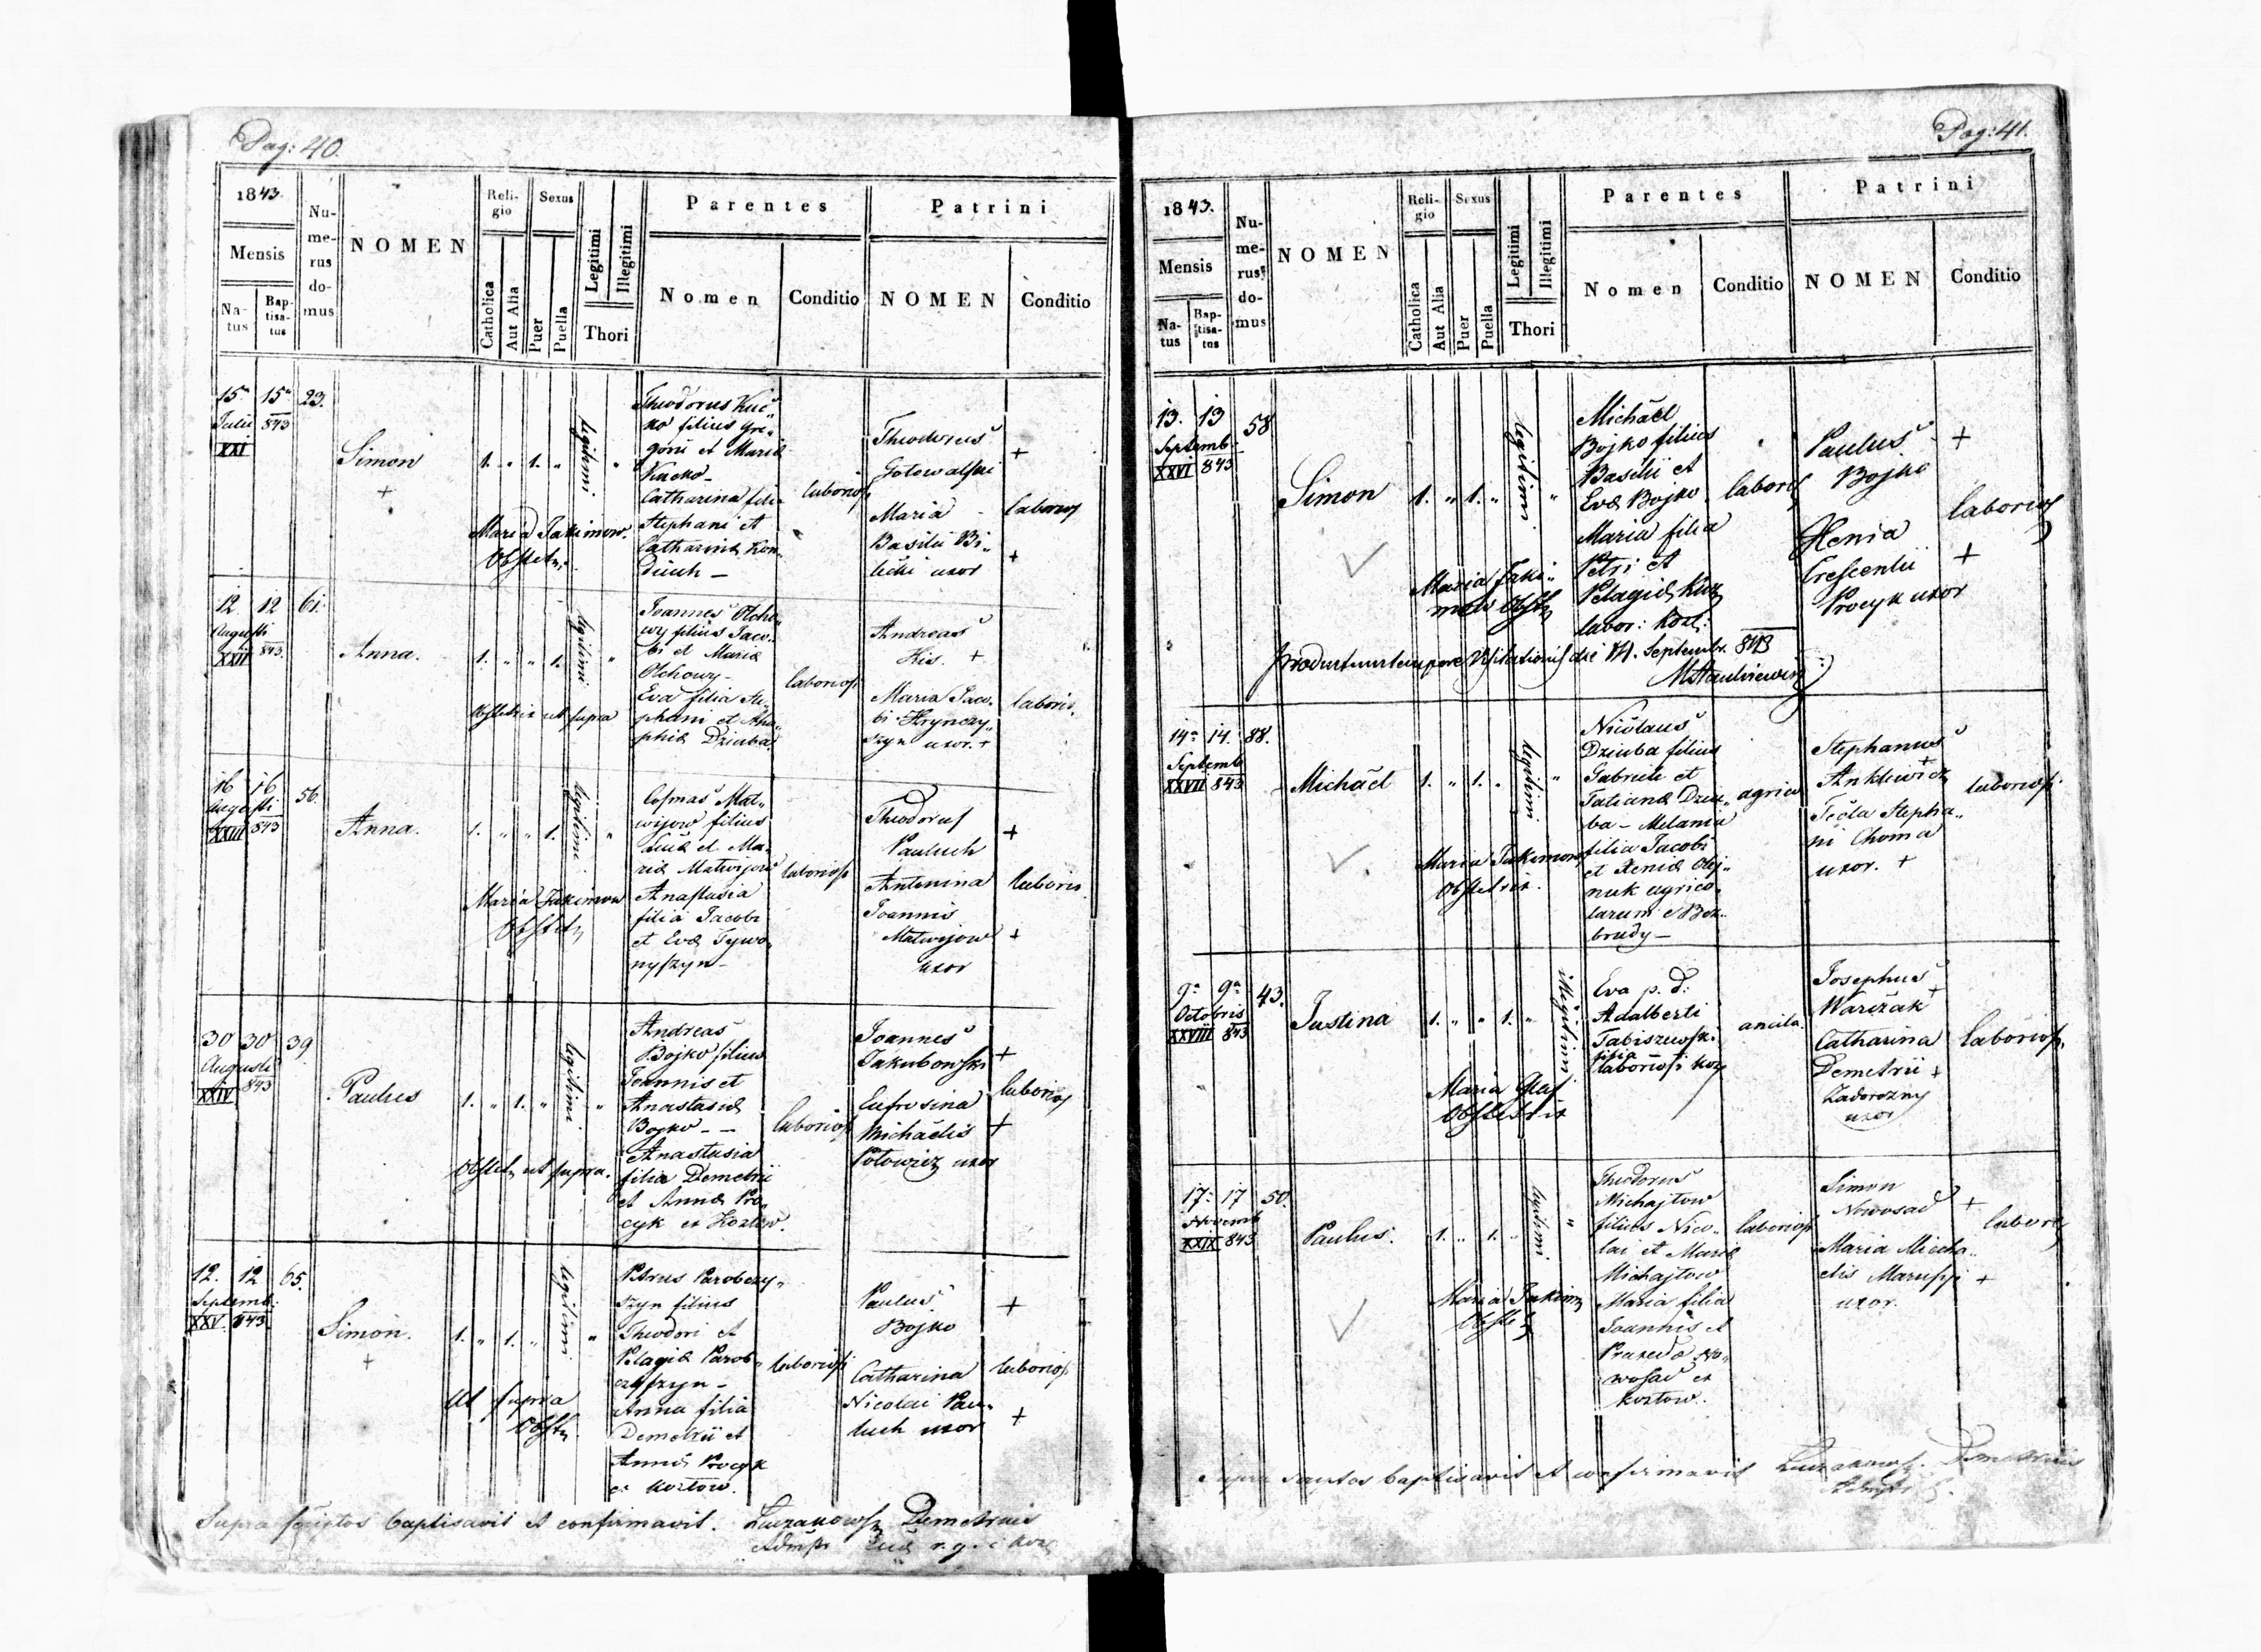 Pag: 40.
1843.
Mensis
Na-
tus
Bap-
tisa-
tus
Nu-
me-
rus
do-
mus
NOMEN
Reli-
gio
Catholica
Aut Alia
Sexus
Puer
Puella
Legitimi
Illegitimi
Thori
Parentes
Nomen
Conditio
Patrini
NOMEN
Conditio
15a 15a 23.
Julii 843
XXI
Simon
+
1. " 1. "
legitimi
"
Maria Jakimow.
Obstetr.
Theodorus Kuć„
ko filius Gre„
gorii et Maria
Kucko -
Catharina filia
Stephani et
Catharina Kon„
Dziuch -
laborios
Theodorus
Gotowalski
+
Maria
Basilii Bi„
licki uxor
+
laborios
12 12 61.
Augusti
XXII 843.
Anna.
1. " " 1.
legitimi
"
Obstetrix ut supra
Joannes Olcho„
wy filius Jaco„
bi et Maria
Olchowy -
Eva filia Ste„
phani et Ana„
phia Dziuba.
laboriosi
Andreas
His. +
Maria Jaco„
bi Hrynczy„
szyn uxor. +
laborio.
16 16 56.
Augusti
XXIII 843
Anna.
1. " " 1.
legitimi
"
Maria Jakimow
Obstetr
Cosmas Mat„
wijow filius
Luca et Ma„
ria Matwijow
Anastasia
filia Jacobi
et Eva Tywo„
nyszyn -
laboriosi
Theodorus
Pauluch
+
Antonina
Joannis
Matwijow +
uxor
laborios
30 30 39
Augusti
XXIV 843
Paulus
1. " 1. "
legitimi
"
Obstetr ut supra.
Andreas
Bojko filius
Joannis et
Anastasia
Bojko - -
Anastasia
filia Demetrii
et Anna Pro„
cyk ex Kozłow.
laborios
Joannes
Jakubowski +
Eufrosina
Michaëlis +
Potowicz uxor
laborios
12. 12 65.
Septemb:
XXV. 843.
Simon.
+
1. " 1. "
legitimi
"
Ut supra
Obstr
Petrus Parobczy„
szyn filius
Theodori et
Pelagia Parob„
czyszyn -
Anna filia
Demetrii et
Anna Procyk
ex Kozłow.
laboriosi
Paulus
Bojko
+
Catharina
Nicolai Pau„
luch uxor
+
laboriosi
Supra scriptos baptisavit et confirmavit. Demetrius
Pag: 41.
1843.
Mensis
Na-
tus
Bap-
tisa-
tus
Nu-
me-
rus
do-
mus
NOMEN
Reli-
gio
Catholica
Aut Alia
Sexus
Puer
Puella
Legitimi
Illegitimi
Thori
Parentes
Nomen
Conditio
Patrini
NOMEN
Conditio
13. 13 58
Septemb.
XXVI 843
Simon
1. " 1. "
legitimi
"
Maria Jaki„
mow Obstr
Michaël
Bojko filius
Basilii et
Eva Bojko
Maria filia
Petri et
Pelagia Kuz
labor: Kozl:
laborios
Paulus +
Bojko
Crescentii +
Procyk uxor
laborios
Productum tempore Visitationis die Septembr. 843
14a 14. 88.
Septemb
XXVII 843
Michaël
1. " 1. "
legitimi
"
Maria Jakimow
Obstetrix.
Nicolaus
Dziuba filius
Gabrieli et
Tatiana Dziu„
ba - Melania
filia Jacobi
et Xenia Olej„
nuk agrico„
larum e Boz„
brudy -
agricol
Stephanus
+
Tecla Stepha„
ni Choma
uxor. +
laboriosi
9a 9a 43.
Octobris
XXVIII 843
Justina
1. " " 1. "
illegitimi
Maria
Obstetrix
Eva p. d:
Adalberti
Tabiszewski
filia
laboriosi Koz
ancila.
Josephus
Warczak +
Catharina
Demetrii +
Zadorozny
uxor
laboriosi.
17. 17 50.
Novemb
XXIX 843
Paulus.
1. " 1. "
legitimi
"
Maria Jakim
Obstr
Theodorus
Michajłow
filius Nico„
lai et Maria
Michajłow
Maria filia
Joannis et
Praxeda No„
wosad ex
Kozłow.
laboriosi
Simon
Nowosad +
Maria Micha„
elis +
uxor.
labor
baptisavit et confirmavit Demetrius